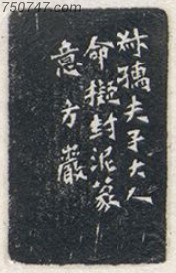 750747.com
叔孺夫子大人
命擬封泥篆
意方巖